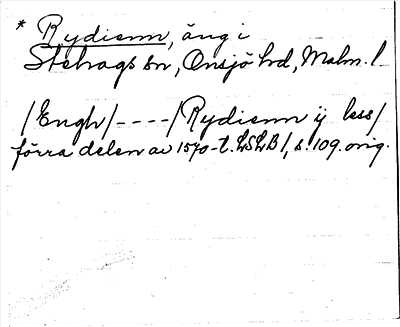 * Rydienn, äng i
Stehags sn, Onsjö hd, Malm. l.
/Engh/----/Rydienn ij less/
förra delen av 1570-t. LSLB 1, s. 109. orig.